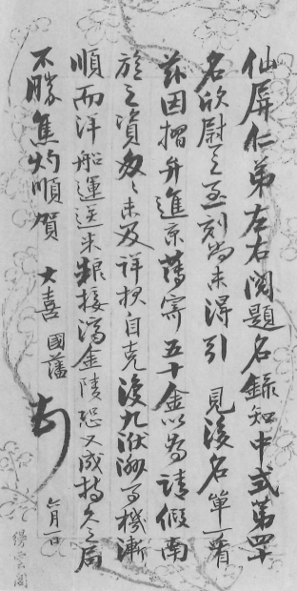 仙屏仁弟左右閱題名錄知中式第四十
名欣慰之至刻尚未得引 見後名單一看
茲因摺弁進京薄寄五十金以為請假南
旋之資匆匆未及詳狀自克復九洑洲與機漸
順而洋船運送米糧接濟金陵恐又成持久之局
不勝焦灼順賀 大喜 國藩 頓
六月一日
縵雲閣